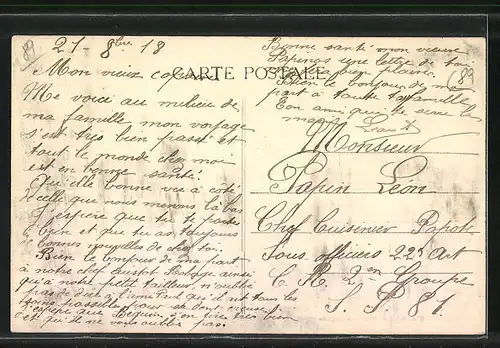 21 - 8bre 18
Mon vieux copain
CARTE POSTALE
Me voici au milieu de
ma famille mon voyage
s'est très bien passé et
tout le monde chez moi
est en bonne santé
Qu'elle bonne vie à côté
de celle que nous menons là bas
J'espère que tu te portes
bien et que tu as toujours
de bonnes nouvelles de chez toi.
Bien le bonjour de ma part
à notre chef ainsi
qu'à notre petit tailleur, n'oublie
pas de dire à
que Béquin s'en tire très bien
et qu'il ne vous oublie pas.
Bonne santé mon vieux
une lettre de toi
plaisir
Bien le bonjour de ma
part à toute ta famille
Ton ami qui te serre les
mains
Monsieur
Papin Léon
Chef Cuisinier Popote
Sous officiers 22e Art
C. R. 2en Groupe
S. P. 81.